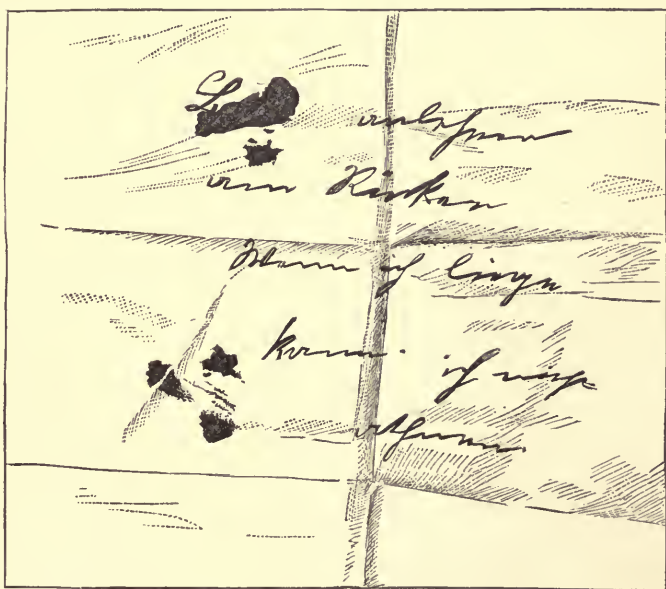 L anlehnen
am Rücken
Wenn ich liege
kann ich nicht
athmen.